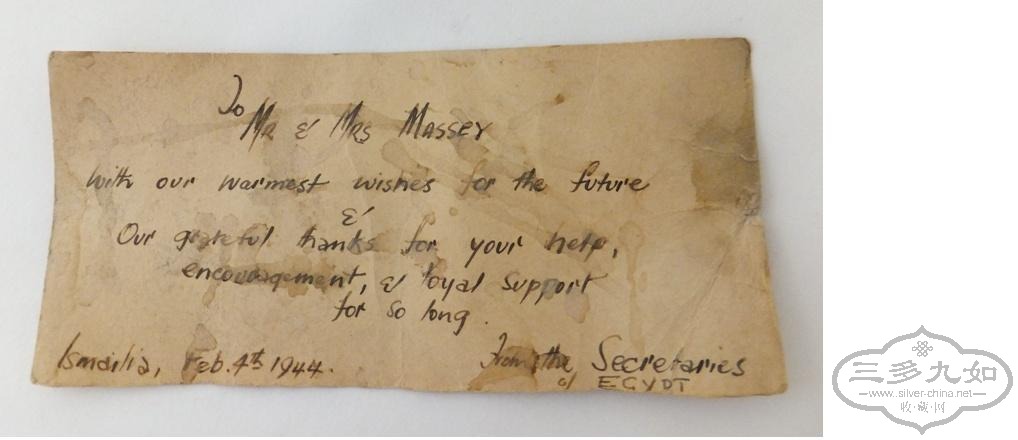 To
Mr & Mrs Massey
with our warmest wishes for the future
&
Our grateful thanks for your help,
encouragement, & loyal support
for so long.
Ismailia, Feb. 4th 1944.
From the Secretaries
of EGYPT
三多九如
www.silver-china.net
收·藏·网